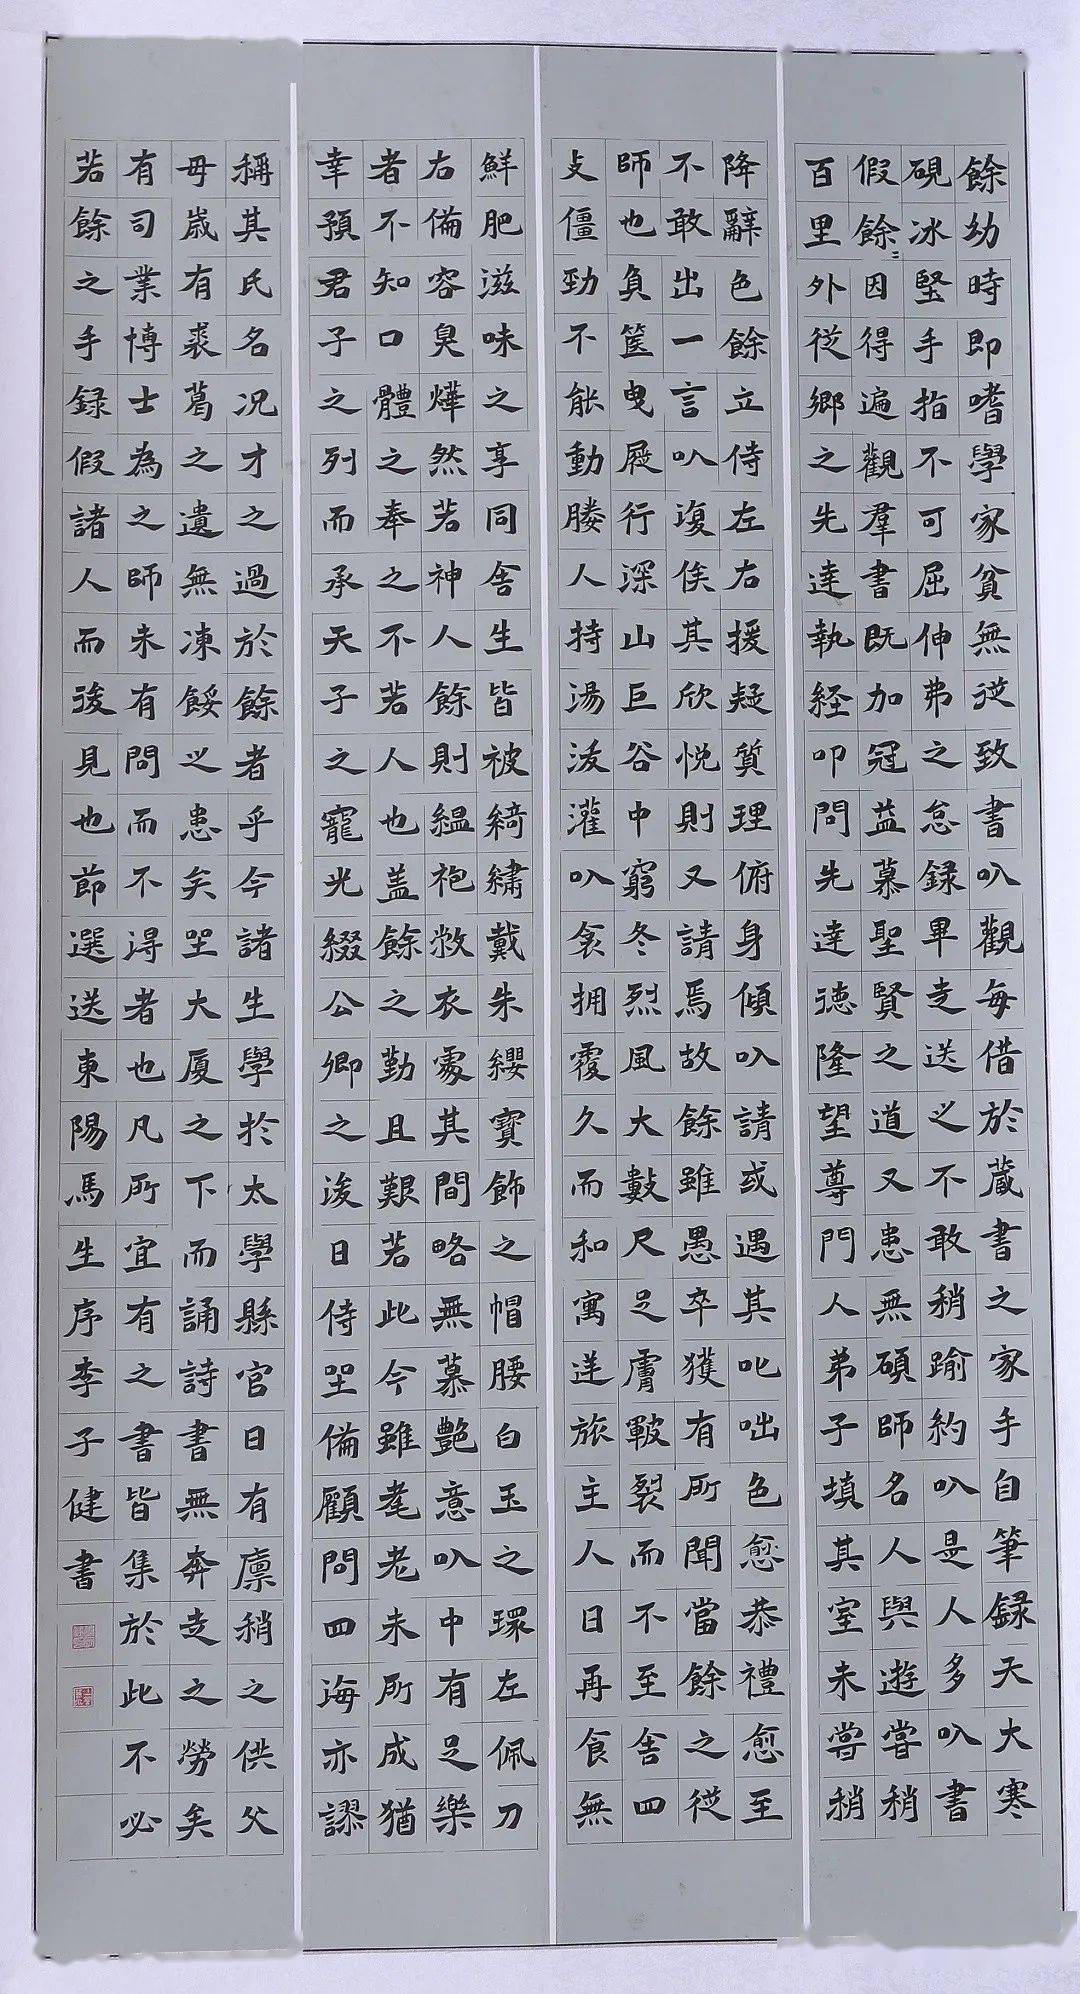 餘幼時即嗜學家貧無從致書以觀每借於藏書之家手自筆録天大寒
硯冰堅手指不可屈伸弗之怠録畢走送之不敢稍踰約以是人多以書
假餘〻因得遍觀羣書既加冠益慕聖賢之道又患無碩師名人與遊嘗稍
百里外從鄉之先達執經叩問先達德隆望尊門人弟子填其室未嘗稍
降辭色餘立侍左右援疑質理俯身傾以請或遇其叱咄色愈恭禮愈至
不敢出一言以復俟其欣悅則又請焉故餘雖愚卒獲有所聞當餘之從
師也負篋曳屣行深山巨谷中窮冬烈風大數尺足膚皸裂而不至舍四
支僵勁不能動媵人持湯沃灌以衾拥覆久而和寓逆旅主人日再食無
鮮肥滋味之享同舍生皆被綺繡戴朱纓寶飾之帽腰白玉之環左佩刀
右備容臭燁然若神人餘則緼袍敝衣處其間略無慕艷意以中有足樂
者不知口體之奉之不若人也蓋餘之勤且艱若此今雖耄老未所成猶
幸預君子之列而承天子之寵光綴公卿之後日侍坐備顧問四海亦謬
稱其氏名况才之過於餘者乎今諸生學於太學縣官日有廩稍之供父
母歲有裘葛之遺無凍餒之患矣坐大廈之下而誦詩書無奔走之勞矣
有司業博士為之師未有問而不得者也凡所宜有之書皆集於此不必
若餘之手録假諸人而後見也節選送東陽馬生序李子健書